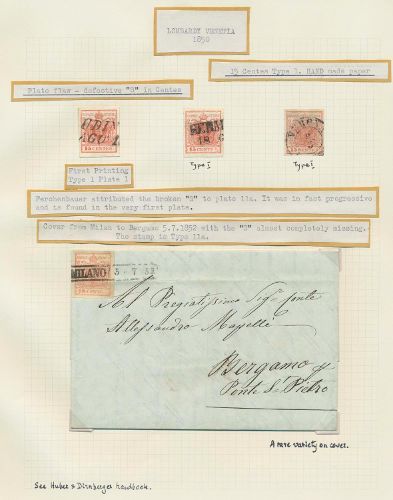 LOMBARDY VENETIA
1850
15 Centes Type 1. HAND made paper
Plate flaw - defective "S" in Centes
AGU 1
15 CENTES
18
15 CENTES
Type I
Type I
First Printing
Type 1 Plate 1
Ferchenbauer attributed the broken "S" to plate 11a. It was in fact progressive
and is found in the very first plate.
Cover from Milan to Bergamo 5.7.1852 with the "S" almost completely missing.
The stamp is Type 11a.
MILANO
Al Pregiatissimo Sigr. Conte
Alessandro
Bergamo
Ponte St. Pietro
A rare variety on cover.
See Huber & Dirnberger handbook.